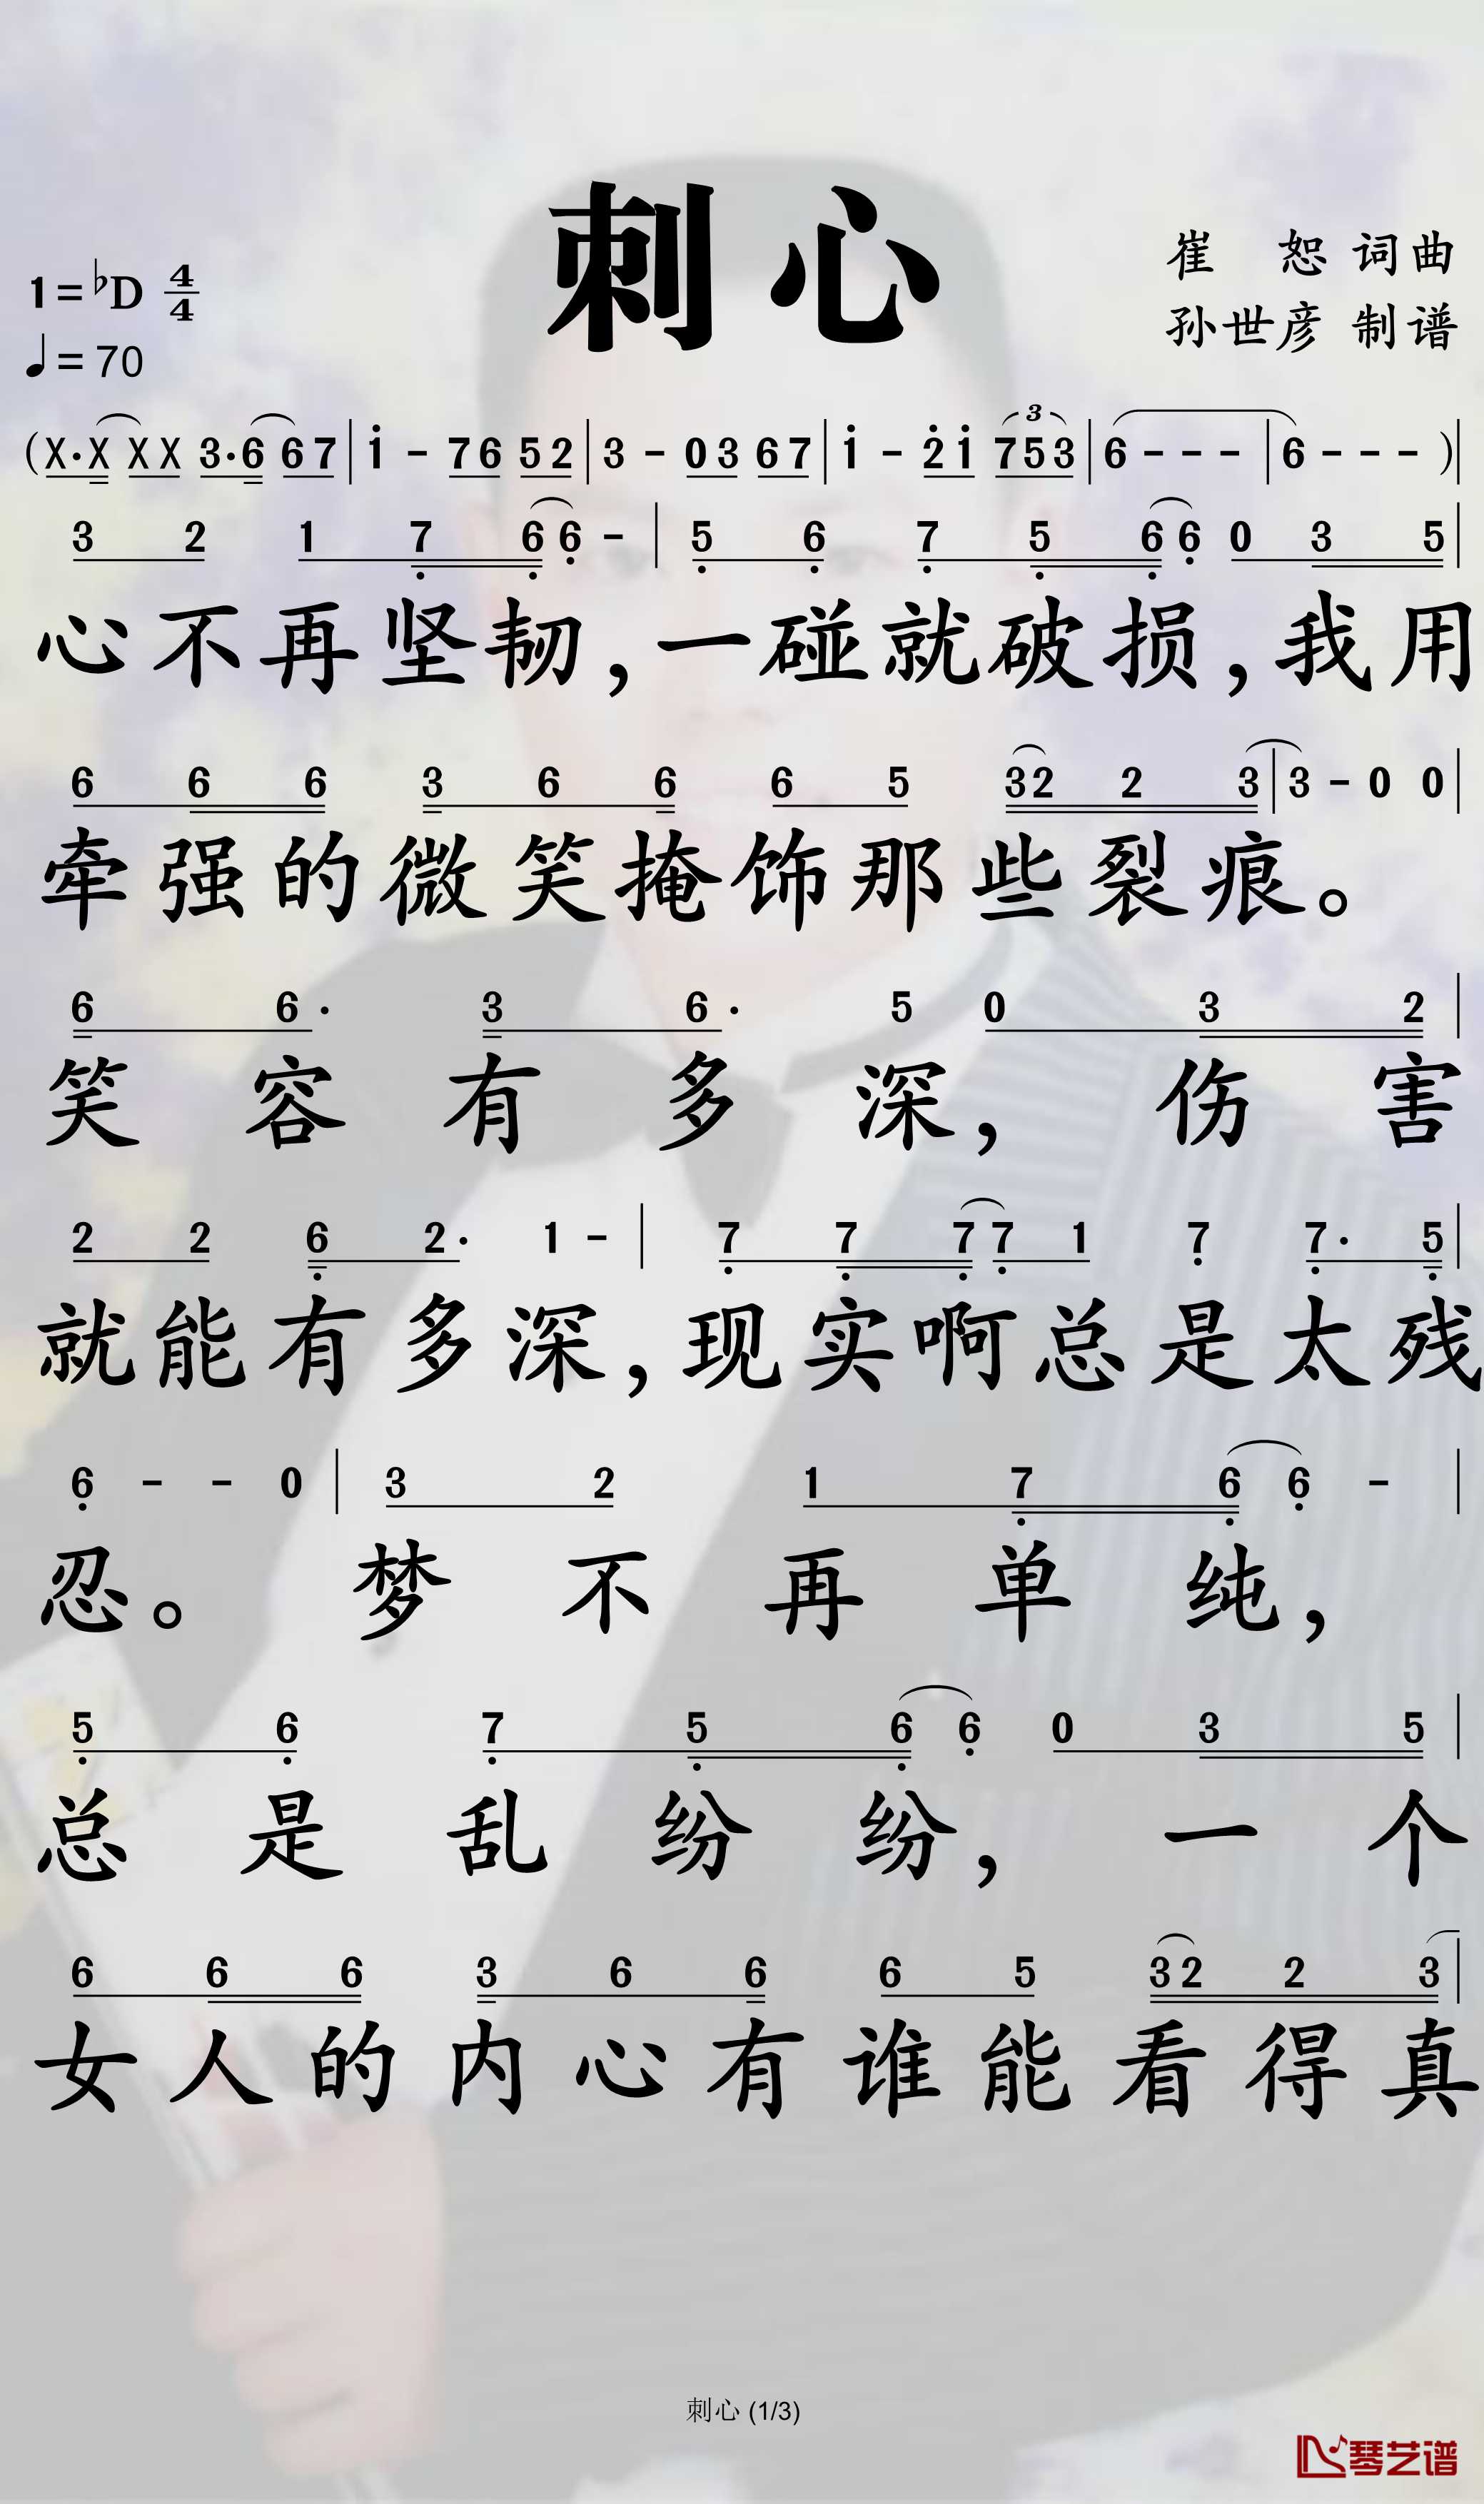 刺心
崔 恕 词曲
孙世彦 制谱
1=♭D 4/4
♩=70
(X·X XX 3·6 67 | i - 76 52 | 3 - 03 67 | i - 2̇i 753 | 6 - - - | 6 - - - ) |
3 2 1 7̣ 6̣ 6̣ - | 5̣ 6̣ 7̣ 5̣ 6̣ 6̣ 0 3 5 |
心不再坚韧,一碰就破损,我用
6 6 6 3 6 6 6 5 32 2 3 | 3 - 0 0 |
牵强的微笑掩饰那些裂痕。
6 6· 3 6· 5 0 3 2 |
笑容有多深,伤害
2 2 6̣ 2· 1 - | 7̣ 7̣ 7̣ 7̣ 1 7̣ 7̣· 5̣ |
就能有多深,现实啊总是太残
6̣ - - 0 | 3 2 1 7̣ 6̣ 6̣ - |
忍。梦不再单纯,
5̣ 6̣ 7̣ 5̣ 6̣ 6̣ 0 3 5 |
总是乱纷纷,一个
6 6 6 3 6 6 6 5 32 2 3 |
女人的内心有谁能看得真
刺心 (1/3)
琴艺谱